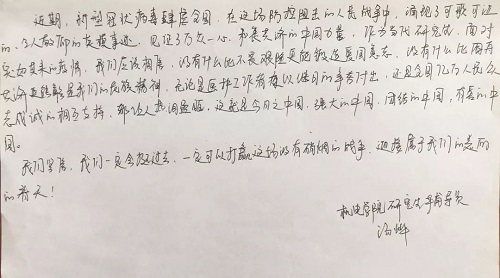 近期，新型冠状病毒肆虐全国，在这场防控阻击的人民战争中，涌现了可歌可泣
的、令人敬仰的英雄事迹，见证了万众一心、和衷共济的中国力量，作为当代研究生，面对
突如其来的疫情，我们应该相信，没有什么比艰难更能锻造爱国意志，没有什么比同舟
共济更能彰显我们的民族精神，无论是医护工作者夜以继日的辛苦付出，还是全国人民众
志成诚的相互支持，都让人热泪盈眶，这就是今日之中国，强大的中国，团结的中国，有爱的中
国。
我们坚信，我们一定会挺过去，一定可以打赢这场没有硝烟的战争，迎接属于我们的美丽
的春天！
机电学院研究生辅导员